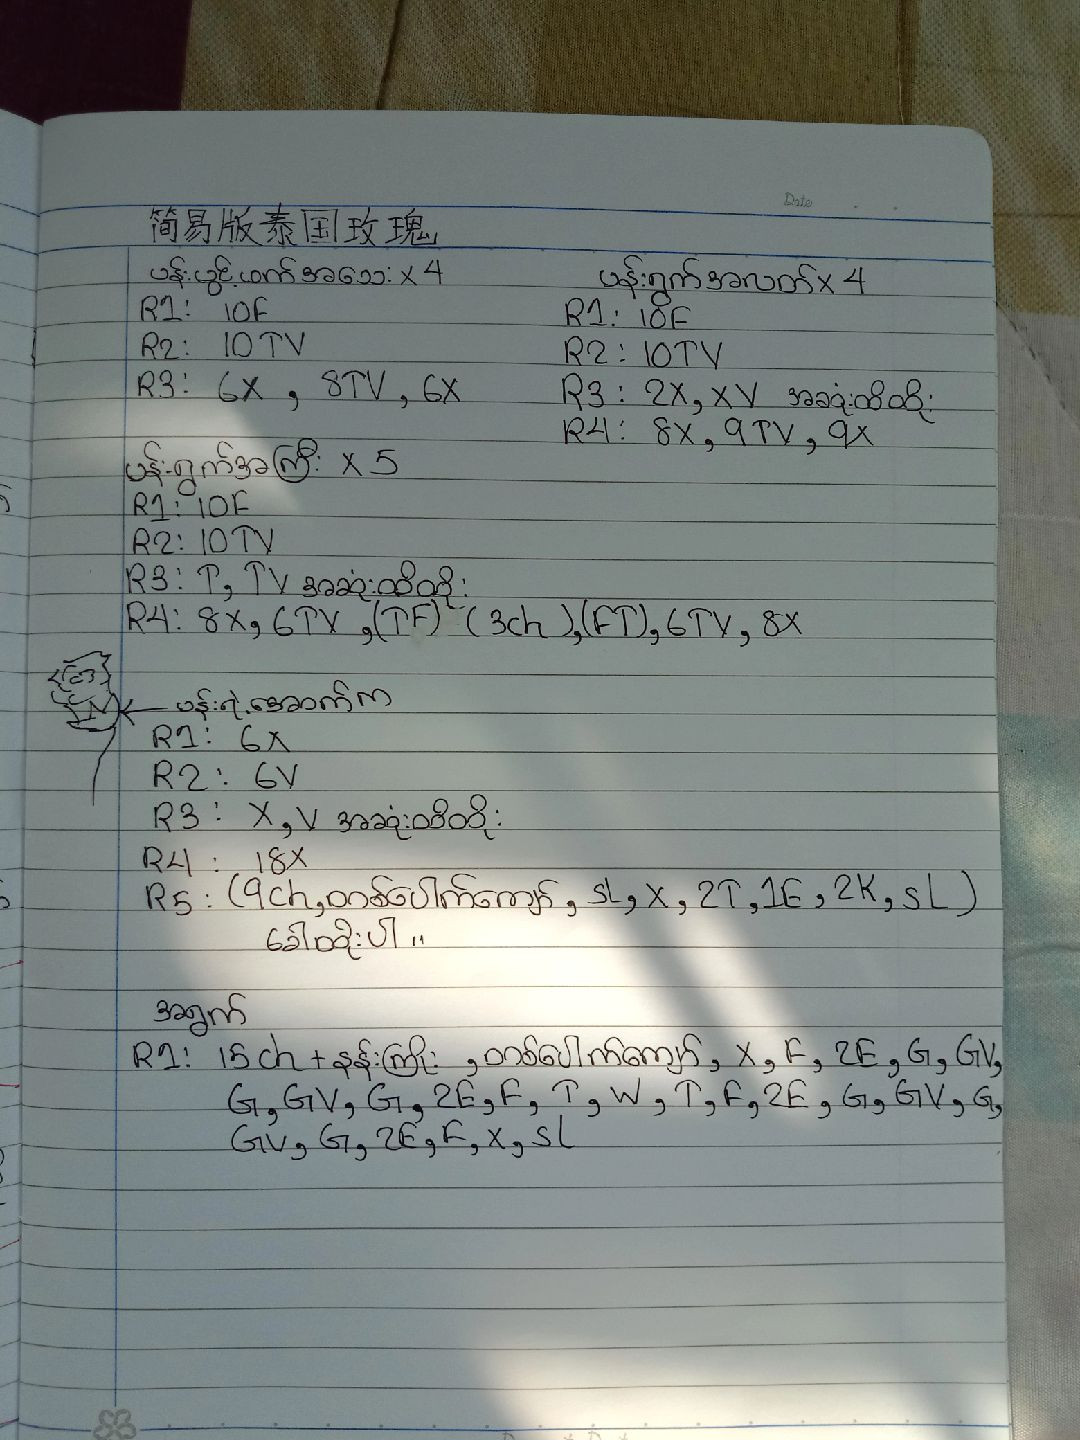 Date
简易版泰国玫瑰
ပန်းပွင့်ဖက်အသေး x 4
R1: 10F
R2: 10TV
R3: 6X, 8TV, 6X
ပန်းရွက်အလတ် x 4
R1: 10F
R2: 10TV
R3: 2X, XV အဆုံးထိထိုး
R4: 8X, 9TV, 9X
ပန်းရွက်အကြီး x 5
R1: 10F
R2: 10TV
R3: T, TV အဆုံးထိထိုး
R4: 8X, 6TV, (TF) (3ch), (FT), 6TV, 8X
ပန်းရဲ့အောက်က
R1: 6X
R2: 6V
R3: X, V အဆုံးထိထိုး
R4: 18X
R5: (9ch, တစ်ပေါက်ကျော်, sl, X, 2T, 1E, 2K, sL)
ခေါထိုးပါ ။
အရွက်
R1: 15ch + နန်းကြိုး, တစ်ပေါက်ကျော်, X, F, 2E, G, GV,
G, GV, G, 2E, F, T, W, T, F, 2E, G, GV, G,
GV, G, 2E, F, X, sl